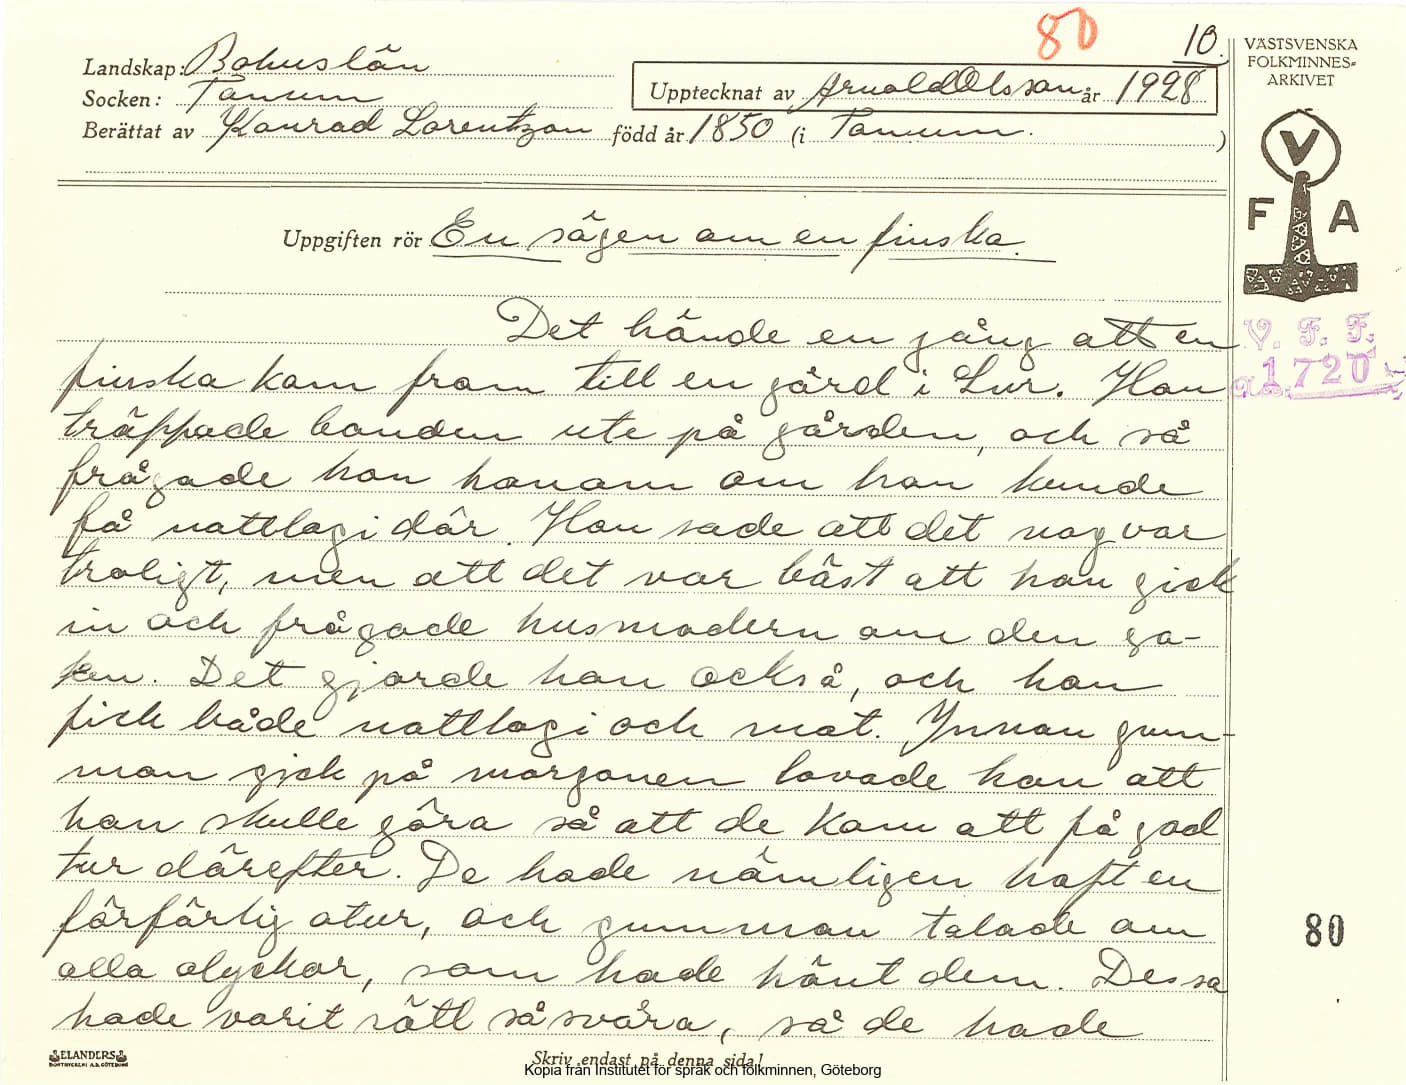 80
10.
Landskap: Bohuslän
Socken: Tanum
Upptecknat av Arnold Olsson år 1928
Berättat av Konrad Lorentzon född år 1850 (i Tanum. )
VÄSTSVENSKA
FOLKMINNES-
ARKIVET
V
F A
Uppgiften rör En sägen om en finska.
V. F. F.
1720
Det hände en gång att en
finska kom fram till en gård i Lur. Hon
träppade bonden ute på gården, och så
frågade hon honom om hon kunde
få nattlogi där. Han sade att det nog var
troligt, men att det var bäst att hon gick
in och frågade husmodern om den sa-
ken. Det gjorde hon också, och hon
fick både nattlogi och mat. Innan gum-
man gick på morgonen lovade hon att
hon skulle göra så att de kom att få god
tur därefter. De hade nämligen haft en
förfärlig otur, och gumman talade om
alla olyckor, som hade hänt dem. Dessa
hade varit rätt så svåra, så de hade
80
ELANDERS
BOKTRYCKERI A.B. GÖTEBORG
Skriv endast på denna sida!
Kopia från Institutet för språk och folkminnen, Göteborg